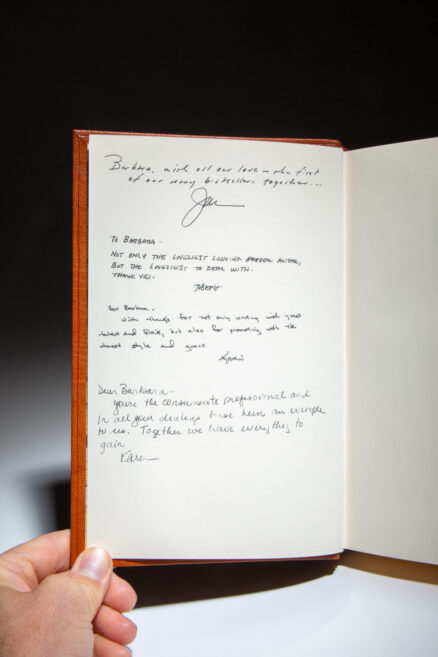 Barbara, with all our love – the first
of our many bestsellers together...
TO BARBARA -
NOT ONLY THE LOVELIEST LOOKING HARPER AUTHOR,
BUT THE LOVELIEST TO DEAL WITH.
THANK YOU.
JOSEPH
for Barbara -
with thanks for not only writing with great
talent and flair, but also for promoting with the
utmost style and grace.
Karen
Dear Barbara -
you're the consummate professional and
in all your dealings have been an example
to us. Together we have everything to
gain
Karen